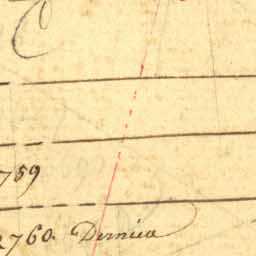 C
759
2760. Dernica